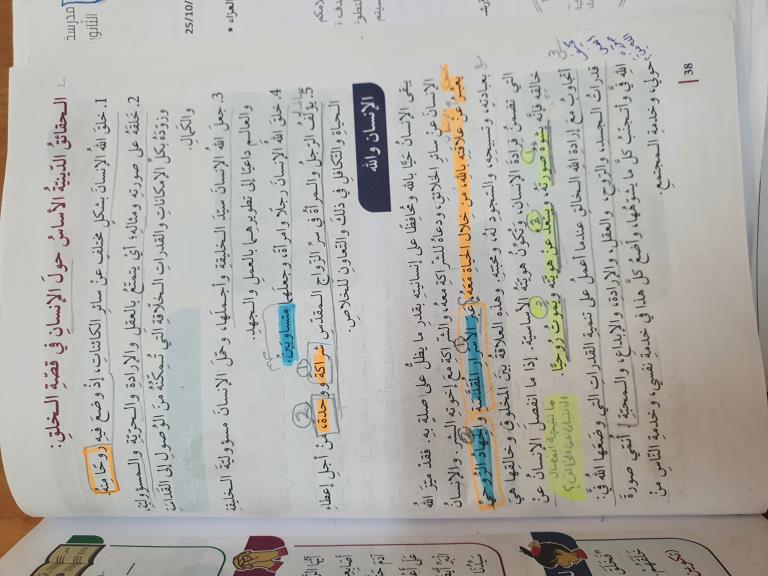 الحقائق الدينية الأساس حول الإنسان في قصة الخلق:
1. خلق الله الإنسان بشكل مختلف عن سائر الكائنات، إذ وضع فيه روحًا منه.
2. خلقه على صورته ومثاله: أي يتمتع بالعقل والإرادة والحرية والمسؤولية،
وزوده بكل الإمكانات والقدرات الخلاقة التي تمكنه من الوصول إلى القداسة
والكمال.
3. جعل الله الإنسان سيد الخليقة وأجملها، وحمل الإنسان مسؤولية الخليقة
والعالم داعيًا إلى تطويرهما بالعمل والجهد.
4. خلق الله الإنسان رجلا وامرأة، وجعلهما متساويين.
5. يؤلف الرجل والمرأة في سر الزواج المقدس شراكة ووحدة، من أجل إعطاء
الحياة والتكافل في ذلك والتعاون للخلاص.
الإنسان والله
يبقى الإنسان حيًا بالله ومحافظًا على إنسانيته بقدر ما يظل على صلة به. فقد ميز الله
الإنسان عن سائر الخلائق، ودعاه للشراكة معه، والشراكة مع إخوته البشر. والإنسان
يعبر عن علاقته بالله، من خلال الحياة معه، عبر الأسرار المقدسة والجهاد الروحي
بعبادته وتسبيحه، والسجود له، ومحبته. وهذه العلاقة بين المخلوق وخالقها هي
التي تضمن فرادة الإنسان، وتكون هويته الأساسية. إذا ما انفصل الإنسان عن
خالقه فإنه يشوه صورته، ويبتعد عن هويته ويموت روحيًا.
ما نتيجة انفصال
الإنسان عن الخالق؟
أتجاوب مع إرادة الله الخالق عندما أعمل على تنمية القدرات التي وضعها الله في:
قدرات الجسد، والروح، والعقل، والإرادة، والإبداع، والمحبة! أنمي صورة
الله في وأتجنب كل ما يشوهها، وأضع كل هذا في خدمة نفسي، وخدمة الناس من
حولي، وخدمة المجتمع.
38
25/10/
مدرسة